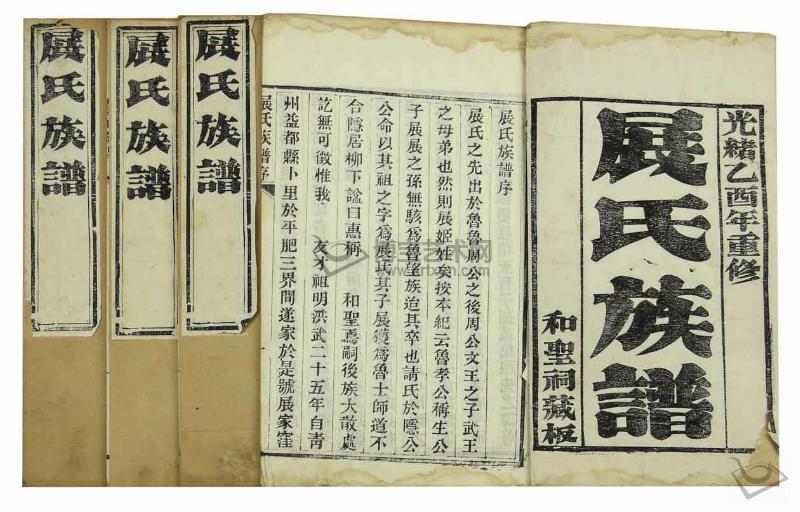 光緒乙酉年重修
展氏族譜
和聖祠藏板
展氏族譜序
展氏之先出於魯魯周公之後周公文王之子武王
之母弟也然則展姬姓矣按本紀云魯孝公稱生公
子展展之孫無駭爲魯望族迨其卒也請氏於隱公
公命以其祖之字爲展氏其子展獲爲魯士師道不
合隱居柳下諡曰惠稱 和聖焉嗣後族大散處
訖無可徵惟我 友才祖明洪武二十五年自青
州益都縣卜里於平肥三界間遂家於是號展家窪
展氏族譜序
展氏族譜
展氏族譜
展氏族譜
博宝艺术网